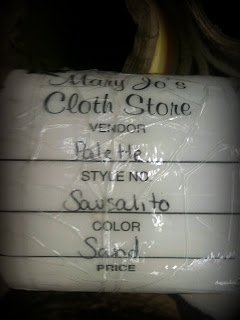 Mary Jo's
Cloth Store
VENDOR
Palette
STYLE NO.
Sausalito
COLOR
Sand
PRICE